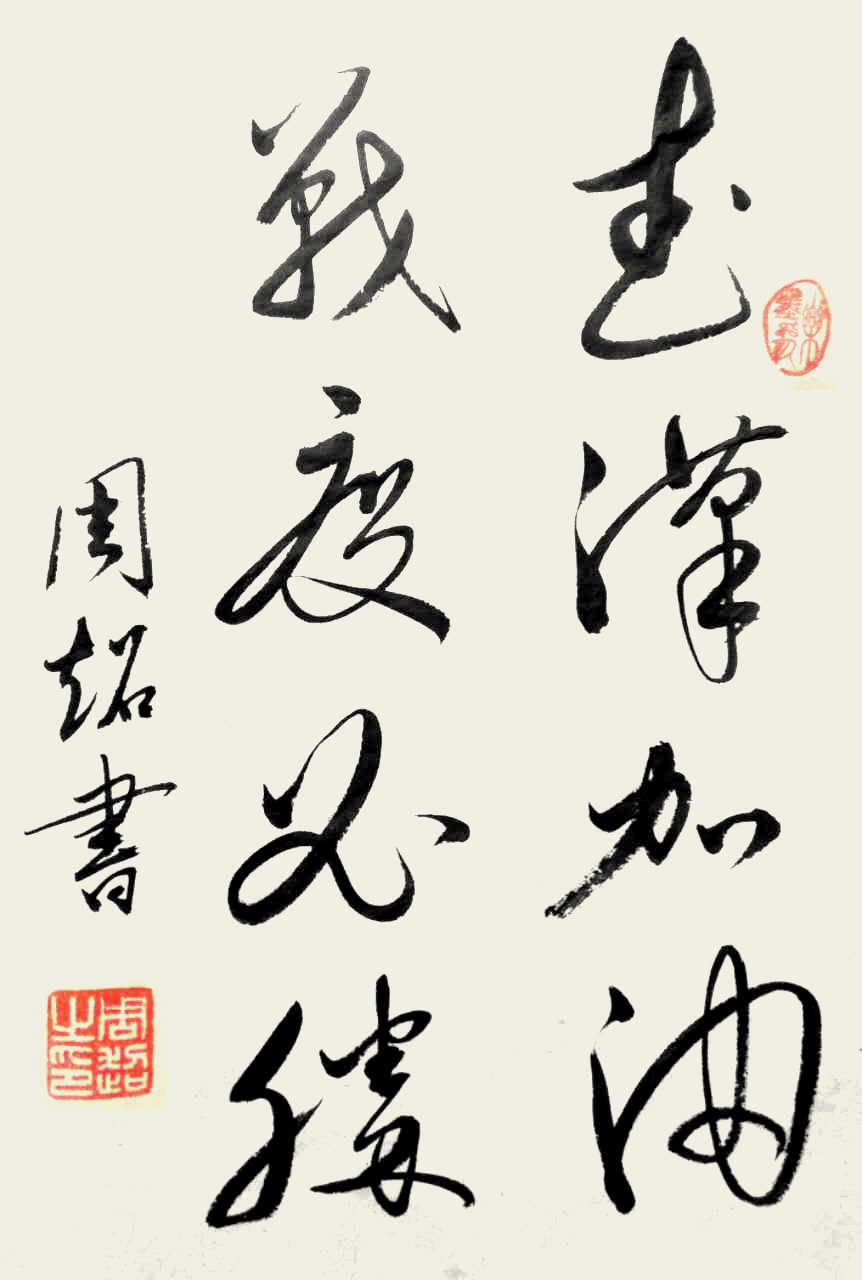 武漢加油
戰疫必勝
周超書
周超之印